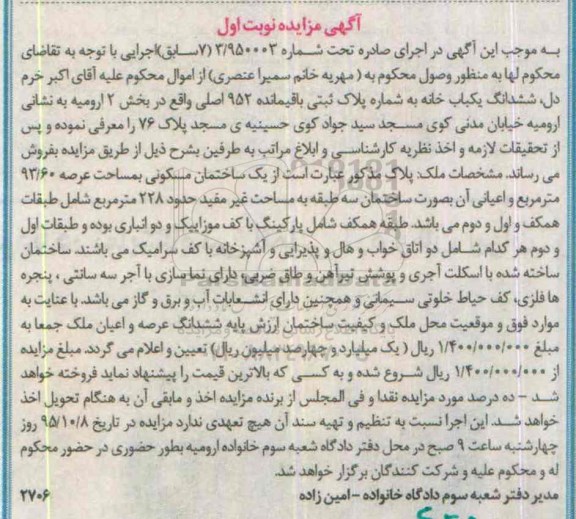 آگهی مزایده نوبت اول
به موجب این آگهی در اجرای صادره تحت شماره ۳/۹۵۰۰۰۳ (۷سابق)اجرایی با توجه به تقاضای
محکوم لها به منظور وصول محکوم به ( مهریه خانم سمیرا عنصری) از اموال محکوم علیه آقای اکبر خرم
دل، ششدانگ یکباب خانه به شماره پلاک ثبتی باقیمانده ۹۵۲ اصلی واقع در بخش ۲ ارومیه به نشانی
ارومیه خیابان مدنی کوی مسجد سید جواد کوی حسینیه ی مسجد پلاک ۷۶ را معرفی نموده و پس
از تحقیقات لازمه و اخذ نظریه کارشناسی و ابلاغ مراتب به طرفین بشرح ذیل از طریق مزایده بفروش
می رساند. مشخصات ملک: پلاک مذکور عبارت است از یک ساختمان مسکونی بمساحت عرصه ۹۳/۶۰
مترمربع و اعیانی آن بصورت ساختمان سه طبقه به مساحت غیر مفید حدود ۲۲۸ مترمربع شامل طبقات
همکف و اول و دوم می باشد. طبقه همکف شامل پارکینگ با کف موزاییک و دو انباری بوده و طبقات اول
و دوم هر کدام شامل دو اتاق خواب و هال و پذیرایی و آشپزخانه با کف سرامیک می باشند. ساختمان
ساخته شده با اسکلت آجری و پوشش تیرآهن و طاق ضربی دارای نما سازی با آجر سه سانتی ، پنجره
ها فلزی، کف حیاط خلوتی سیمانی و همچنین دارای انشعابات آب و برق و گاز می باشد. با عنایت به
موارد فوق و موقعیت محل ملک و کیفیت ساختمان ارزش پایه ششدانگ عرصه و اعیان ملک جمعا به
مبلغ ۱/۴۰۰/۰۰۰/۰۰۰ ریال ( یک میلیارد و چهارصد میلیون ریال) تعیین و اعلام می گردد. مبلغ مزایده
از ۱/۴۰۰/۰۰۰/۰۰۰ ریال شروع شده و به کسی که بالاترین قیمت را پیشنهاد نماید فروخته خواهد
شد - ده درصد مورد مزایده نقدا و فی المجلس از برنده مزایده اخذ و مابقی آن به هنگام تحویل اخذ
خواهد شد. این اجرا نسبت به تنظیم و تهیه سند آن هیچ تعهدی ندارد مزایده در تاریخ ۹۵/۱۰/۸ روز
چهارشنبه ساعت ۹ صبح در محل دفتر دادگاه شعبه سوم خانواده ارومیه بطور حضوری در حضور محکوم
له و محکوم علیه و شرکت کنندگان برگزار خواهد شد.
مدیر دفتر شعبه سوم دادگاه خانواده - امین زاده ۲۷۰۶